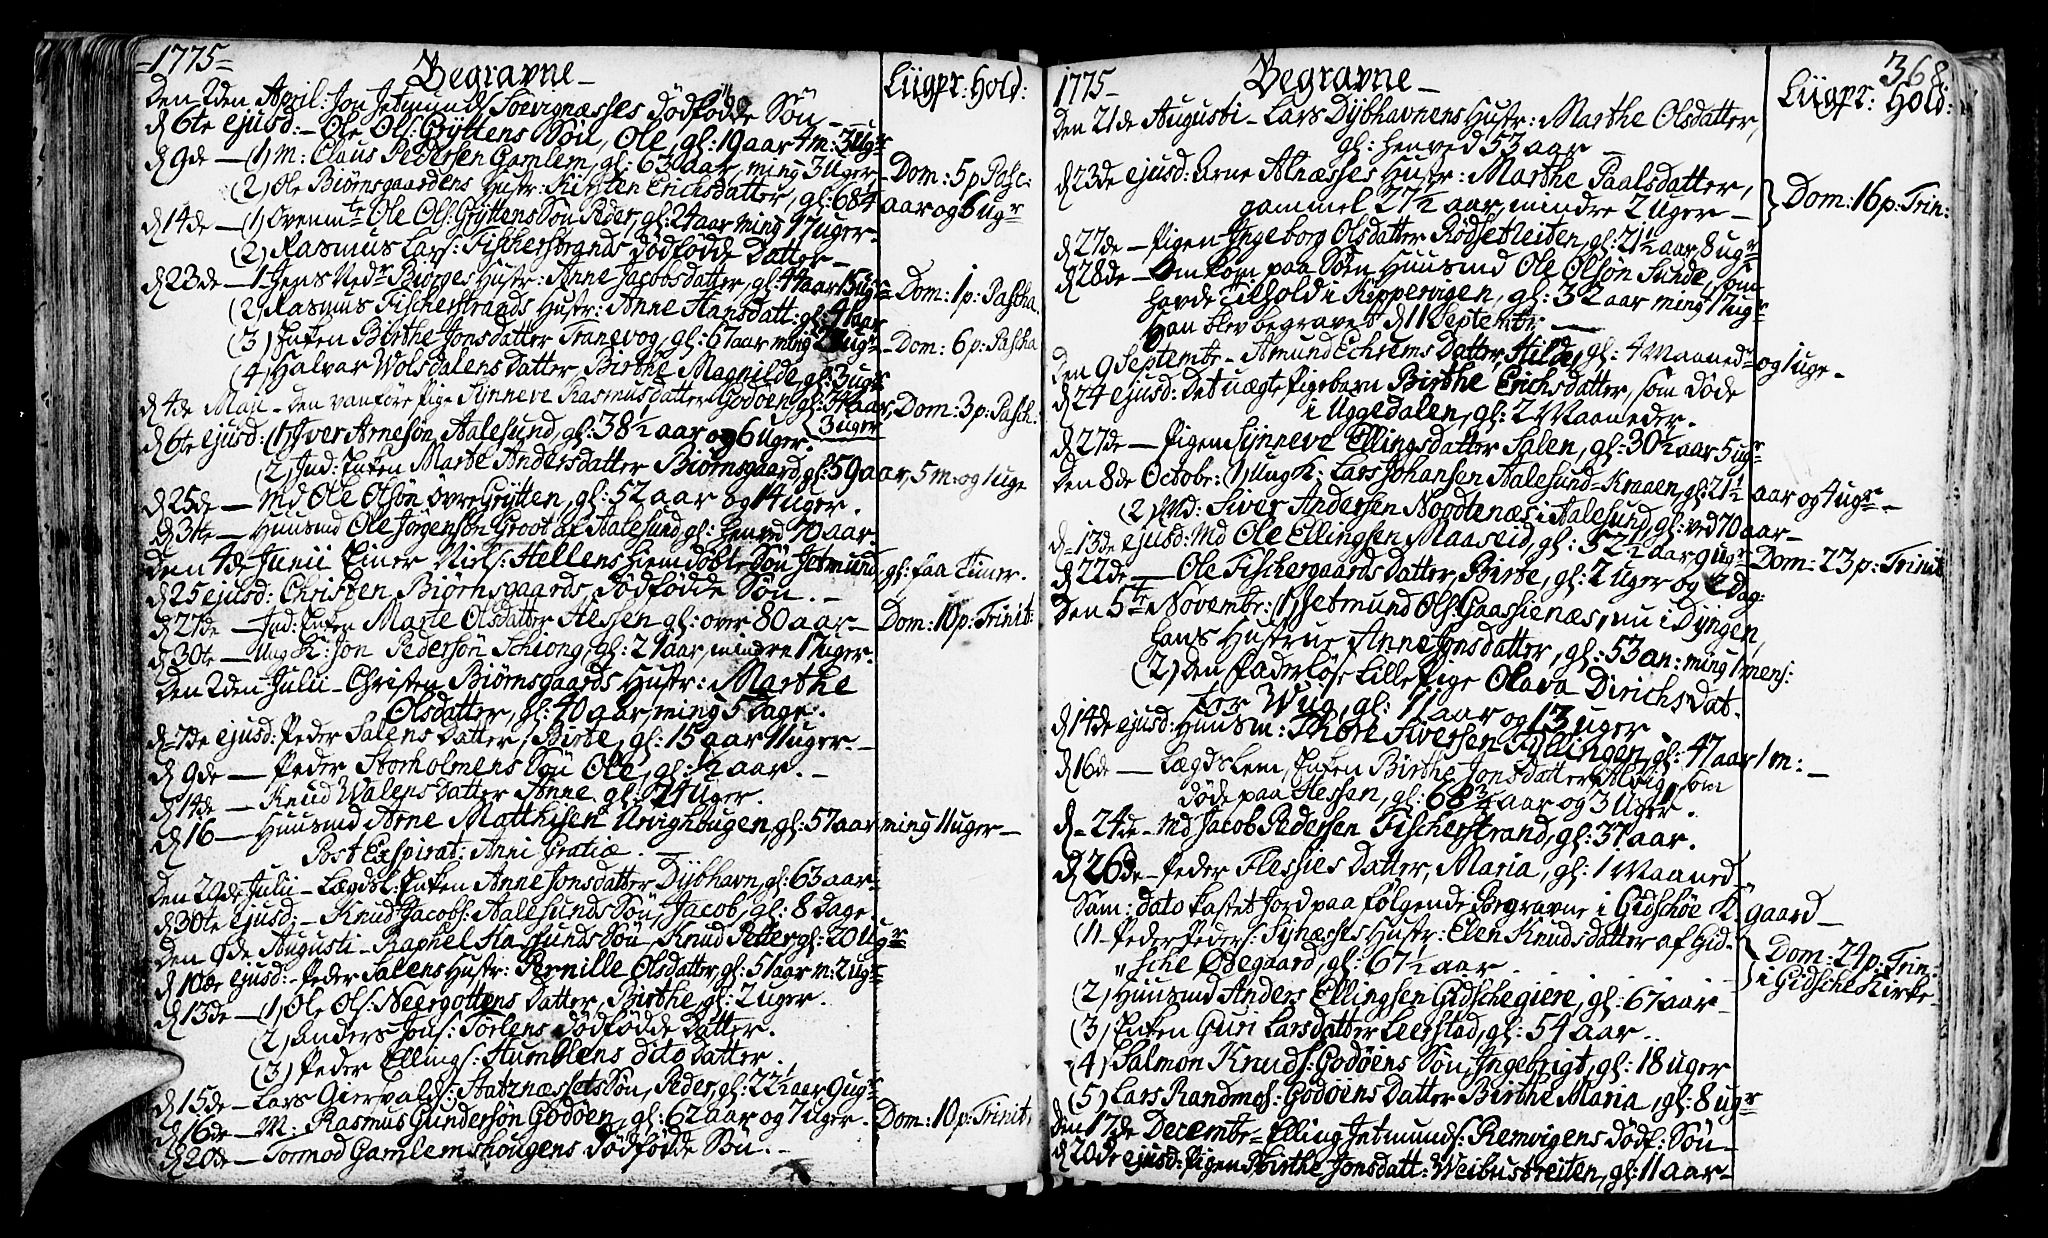 =1775=
Begravne
Liigpr: Hold:
Den 2den April: Jon Jetmunds Soevignæsses dödfödde Sön
d 6te ejusd: Ole Ols: Gryttens Sön, Ole, gl: 19 aar 4 m: 3 ugr
d 9de (1) M: Claus Pedersen Gamlem, gl: 63 aar, ming 3 Uger Dom: 5 p: Pasc:
(2) Ole Biørnsgaardens Hustr: Kirsten Erichsdatter, gl: 68 4 aar og 6 ugr
d 14de (1) Ovenmte Ole Ols: Gryttens Sön Peder, gl: 24 aar ming 17 uger
(2) Rasmus Lars: Fischerstrands dödfödde Datter
d 23de 1 Jens Nedr Biorges Hustr: Anne Jacobsdatter, gl: 44 aar 15 ugr Dom: 1 p: Pascha
(2) Rasmus Fischerstrands Hustr: Anne Hansdatt: gl: 41 aar
(3) Enken Birthe Jonsdatter Tranevog, gl: 67 aar ming 2 ugr Dom: 6 p: Pascha
(4) Halvar Wolsdalens Datter, Birthe Magnilde, gl: 3 ugr
d 4de Maji Den vanföre Pige Synneve Rasmusdatter Godøen, gl: 34 aar, 3 uger Dom: 3 p: Pasch:
d 6te ejusd: (1) Iver Arnesøn Aalesund, gl: 38 1/2 aar og 6 Uger.
(2) Ind: Enken Marte Andersdatter Biørnsgaard, gl: 59 aar, 5 m: og 1 uge
d 25de Md Ole Olsön övre Grytten, gl: 52 aar og 14 uger.
d 31te Huusmd Ole Jörgensön Groot af Aalesund, gl: henved 70 aar
Den 4de Junii Einer Niels: Hellens hiemdöbte Sön Jetmund, gl: faa Timer.
d 25 ejusd: Christen Biørnsgaards dödfödde Sön.
d 27de Ind: Enken Marte Olsdatter Hessen gl: over 80 aar Dom: 10 p: Trinit:
d 30te Ung K: Jon Pedersön Schiong, gl: 21 aar, mindre 17 uger.
Den 2den Julii Christen Biørnsgaards Hustr: Marthe
Olsdatter, gl: 40 aar, ming 5 dage.
d 7de ejusd: Peder Salens Datter, Birte, gl: 15 aar 11 uger.
d 9de Peder Storholmens Sön Ole, gl: 1/2 aar.
d 14de Knud Walens Datter Anne gl: 24 uger.
d 16 Huusmd Arne Matthisen Urvighbugen, gl: 57 aar ming 11 uger
Post Exspirat: Anni Gratiæ.
Den 20de Julii Lægdsl: Enken Anne Jonsdatter Dybhavn, gl: 63 aar
d 30te ejusd: Knud Jacobs: Aalesunds Sön, Jacob, gl: 8 dage.
Den 9de Augusti Raphel Hassunds Sön, Knud Petter, gl: 20 ugr
d 10de ejusd: Peder Salens Hustr: Pernille Olsdatter, gl: 51 aar m: 2 ugr
d 13de (1) Ole Ols: Neergottens Datter, Birthe, gl: 2 uger.
(2) Anders Jons: Törlens dödfödde Datter.
(3) Peder Ellings: Humblens dito Datter.
d 15de Lars Giervalds: Statznæssets Sön, Peder, gl: 22 1/2 aar 9 ugr
d 16de M: Rasmus Gundersön Godøen, gl: 62 aar og 7 uger. Dom: 10 p: Trinit:
d 20de Tormod Gamlemshougens dödfödde Sön.
1775
Begravne
368
Liigpr: Hold:
Den 21de Augusti Lars Dybhavnens Hustr: Marthe Olsdatter,
gl: henved 53 aar
d 23de ejusd: Arne Alnæsses Hustr: Marthe Paalsdatter,
gammel 27 1/2 aar, mindre 2 uger Dom: 16 p: Trin:
d 27de Pigen Ingeborg Olsdatter Rödsetreiten, gl: 21 1/2 aar, 8 ugr
d 28de Omkom paa Söen Huusmd Ole Olsön Sunde, som
havde Tilhold i Kippervigen, gl: 32 aar ming 17 ugr
Han blev begravet d 11 Septembr
Den 9 Septembr Amund Echrems Datter, Hilde, gl: 4 Maanedr og 1 uge
d 24 ejusd: Det uægte Pigebarn Birthe Erichsdatter, som döde
i Uggedalen, gl: 2 Maaneder.
d 27de Pigen Synneve Ellingsdatter Salen, gl: 30 1/2 aar 5 ugr
Den 8de Octobr: (1) Ung K: Lars Johansen Aalesund-Kraaen, gl: 21 1/2 aar og 4 ugr
(2) Md: Siver Andersen Noodtenæs i Aalesund, gl: ved 70 aar
d 13de ejusd: Md Ole Ellingsen Maaseid, gl: 52 1/2 aar, 9 ugr Dom: 23 p: Trinit
d 22de Ole Fischergaards Datter, Birte, gl: 2 uger og 2 dag:
Den 5te Novembr: (1) Jetmund Ols: Gaaschenæs, nu i Dyngen,
hans Hustrue Anne Jonsdatter, gl: 53 an: ming 1 mens:
(2) Den Faderlöse Lille Pige Olava Dirichsdat-
ter Wug, gl: 11 aar og 13 uger
d 14de ejusd: Huusm: Thore Siversen Fyllingen, gl: 47 aar 1 m:
d 16de Lægdslem, Enken Birthe Jonsdatter Alvig, som
döde paa Hessen, gl: 68 3/4 aar og 3 Uger.
d 24de Md Jacob Pedersen Fischerstrand, gl: 37 aar.
d 26de Peder Flessies Datter, Maria, gl: 1 Maaned
Sam: dato kastet Jord paa fölgende Begravne i Gidschöe K-gaard
(1) Peder Peders: Syhæssets Hustr: Elen Knudsdatter af Gid-
sche Ødegaard, gl: 67 1/2 aar
Dom: 24 p: Trin:
i Gidsche Kirke
(2) Huusmd Anders Ellingsen Gidschegiere, gl: 67 aar
(3) Enken Guri Larsdatter Leerstad, gl: 54 aar
(4) Salmon Knuds: Godøens Sön, Ingebrigt, gl: 18 uger
(5) Lars Randmos: Godøens Datter Birthe Maria, gl: 8 ugr
Den 17de Decembr Elling Jetmunds: Remvigens dödf: Sön
d 20de ejusd: Pigen Birthe Jonsdatt: Weibustreiten, gl: 11 aar